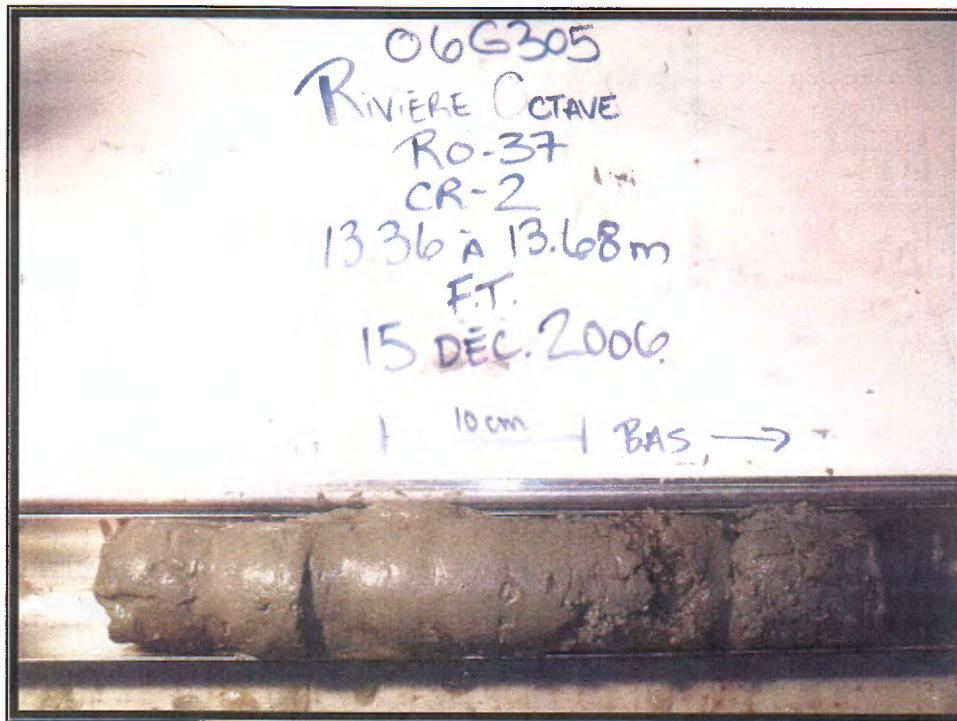 06G305
RIVIÈRE OCTAVE
RO-37
CR-2
13.36 À 13.68m
F.T.
15 DÉC. 2006
10 cm
BAS →